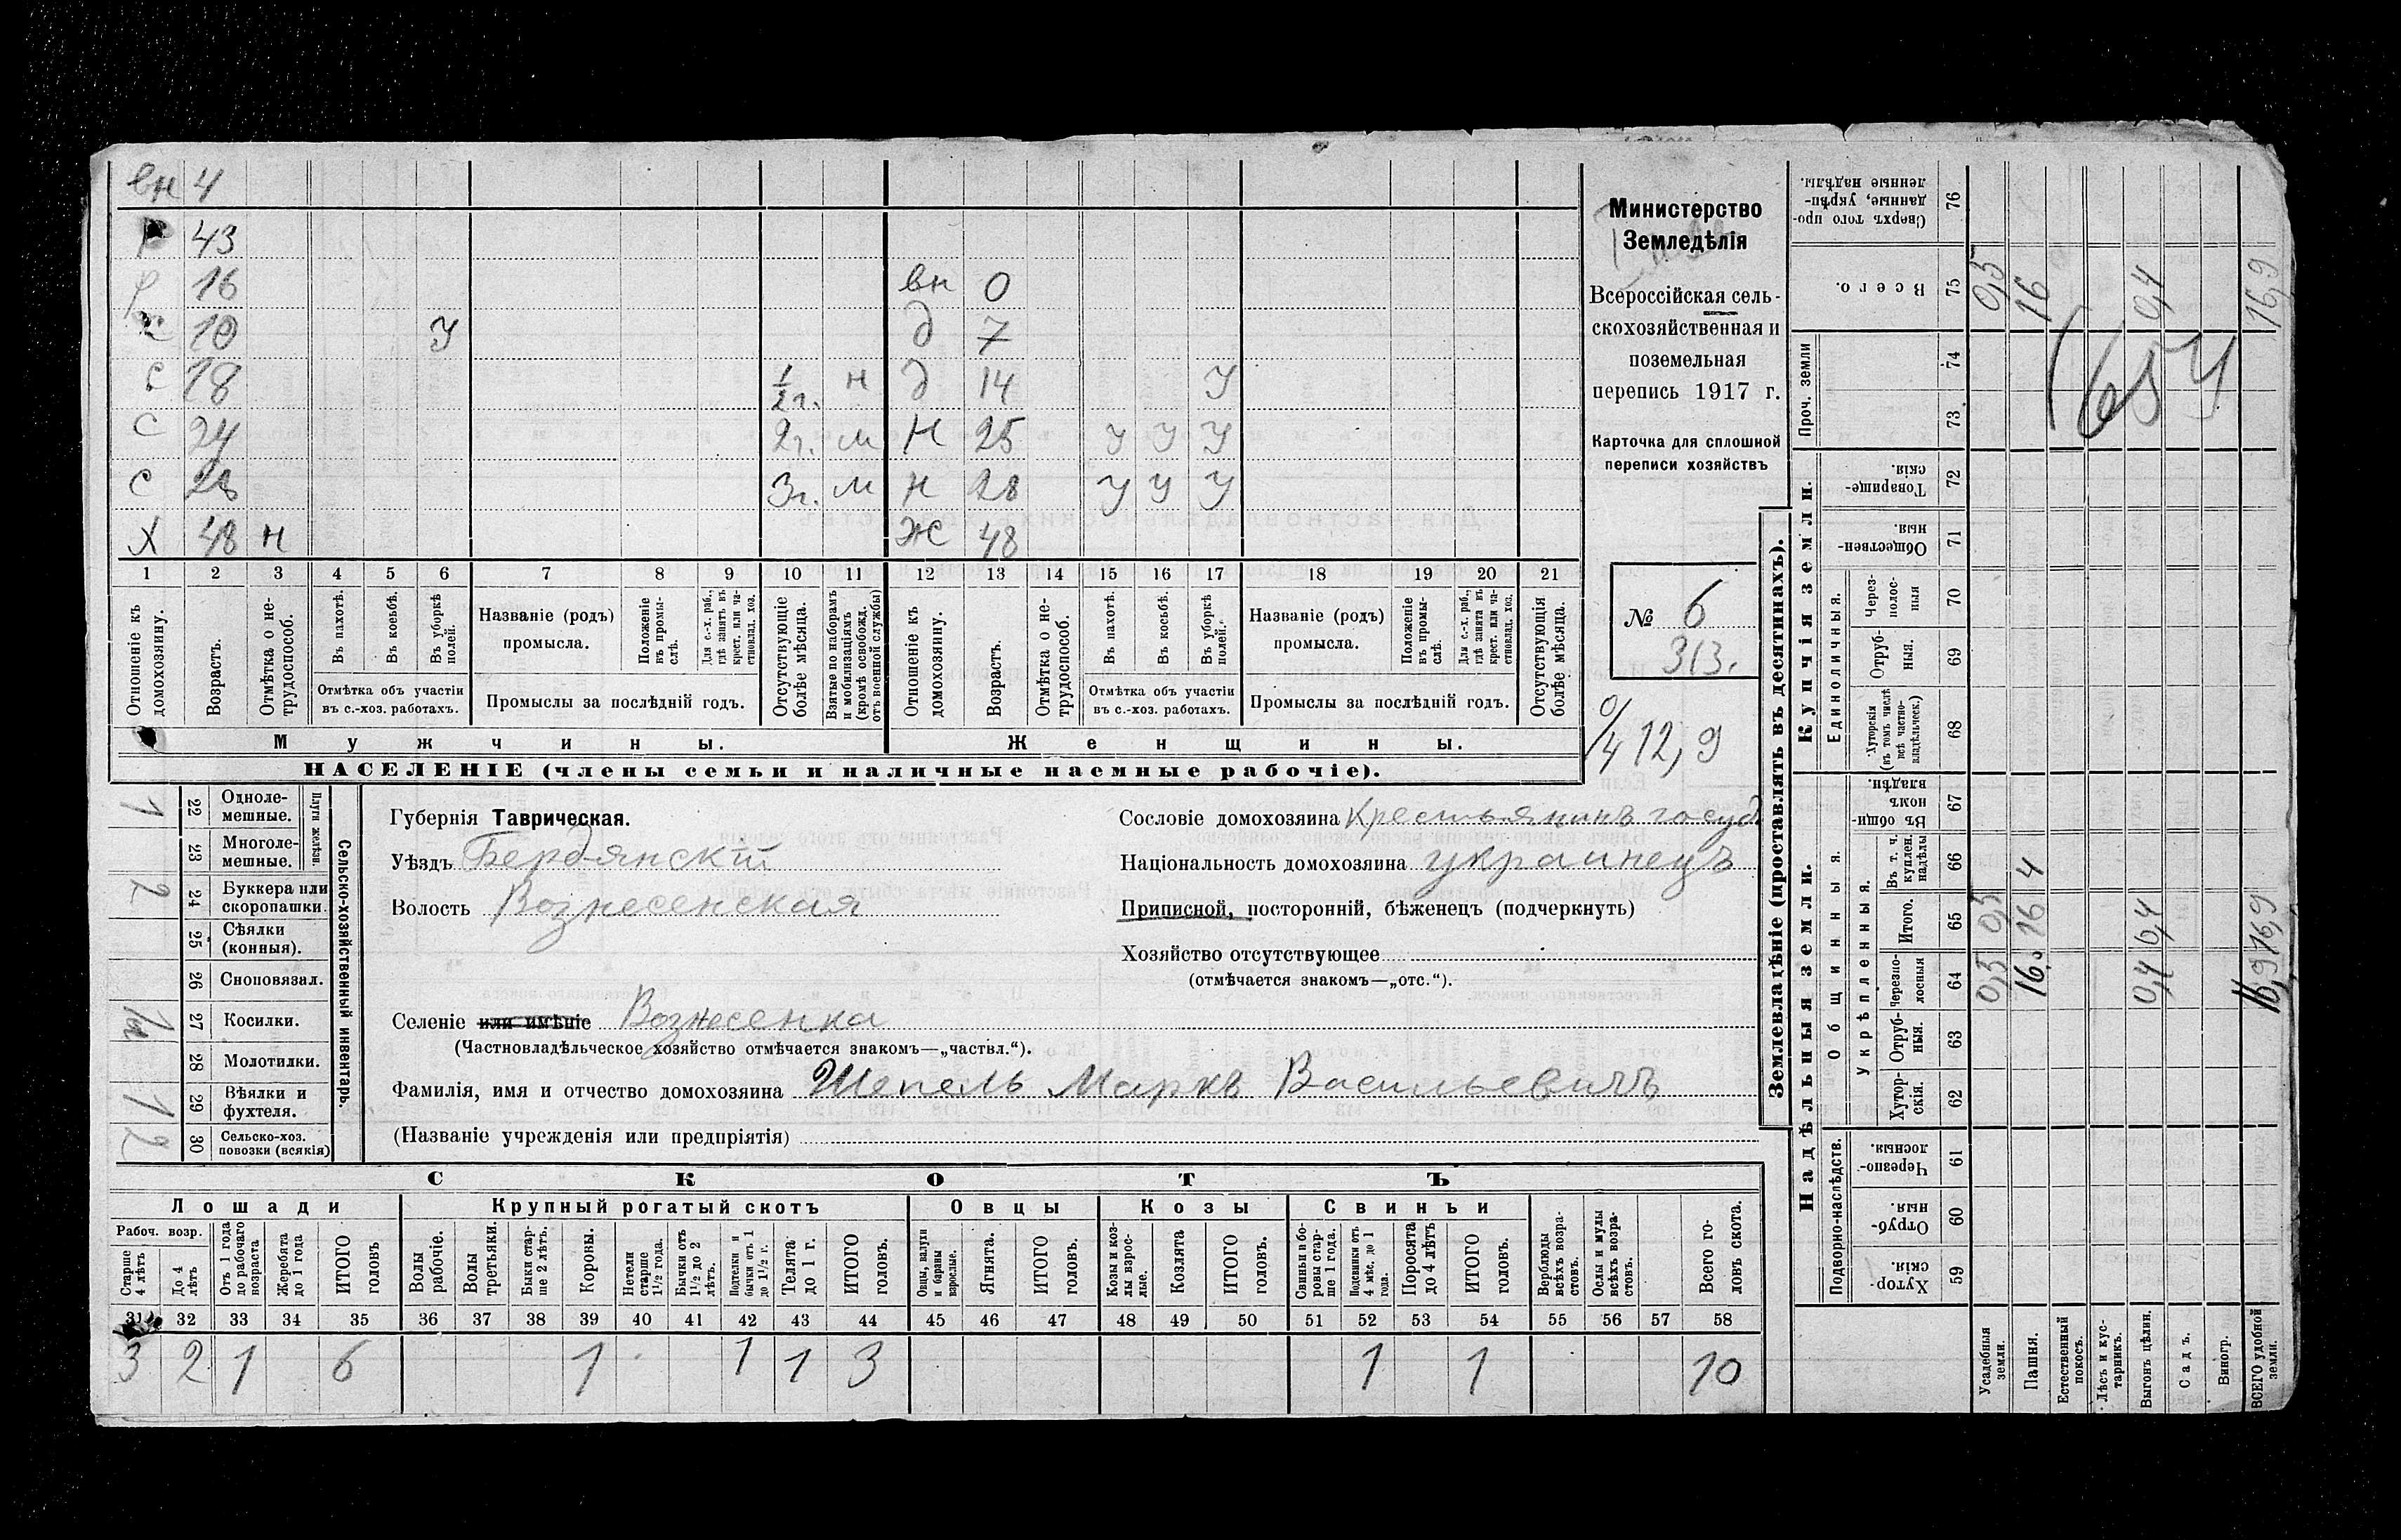 вн 4
р 43
р 16 вн 0
с 10 У д 7
с 18 1/2 г. н д 14 У
с 24 2 г. м н 25 У У У
с 28 3 г. м н 28 У У У
Х 48 н Ж 48
1 2 3 4 5 6 7 8 9 10 11 12 13 14 15 16 17 18 19 20 21
Отношеніе къ домохозяину.
Возрастъ.
Отмѣтка о не-трудоспособ.
Въ пахотѣ.
Въ косьбѣ.
Въ уборкѣ полей.
Отмѣтка объ участіи въ с.-хоз. работахъ.
Названіе (родъ) промысла.
Положеніе въ промы-слѣ.
Для с.-х. раб., гдѣ занятъ въ крест. или ча-стновлад. хоз.
Промыслы за послѣдній годъ.
Отсутствующіе болѣе мѣсяца.
Взятые по наборамъ и мобилизаціямъ (кромѣ освобожд. отъ военной службы)
Отношеніе къ домохозяину.
Возрастъ.
Отмѣтка о не-трудоспособ.
Въ пахотѣ.
Въ косьбѣ.
Въ уборкѣ полей.
Отмѣтка объ участіи въ с.-хоз. работахъ.
Названіе (родъ) промысла.
Положеніе въ промы-слѣ.
Для с.-х. раб., гдѣ занята въ крест. или ча-стновлад. хоз.
Промыслы за послѣдній годъ.
Отсутствующія болѣе мѣсяца.
Мужчины. Женщины.
НАСЕЛЕНІЕ (члены семьи и наличные наемные рабочіе).
Министерство
Земледѣлія
Всероссійская сель-
скохозяйственная и
поземельная
перепись 1917 г.
Карточка для сплошной
переписи хозяйствъ
№ 6
313.
12,9
Сельско-хозяйственный инвентарь.
Плуги желѣзн.
22 Одноле-мешные. 1
23 Многоле-мешные.
24 Буккера или скоропашки. 2
25 Сѣялки (конныя).
26 Сноповязал.
27 Косилки.
28 Молотилки.
29 Вѣялки и фухтеля. 1
30 Сельско-хоз. повозки (всякія) 2
Губернія Таврическая.
Уѣздъ Бердянскій
Волость Вознесенская
Селеніе или имѣніе Вознесенка
(Частновладѣльческое хозяйство отмѣчается знакомъ—„частвл.“).
Фамилія, имя и отчество домохозяина Шепель Маркъ Васильевичъ
(Названіе учрежденія или предпріятія)
Сословіе домохозяина Крестьянинъ госуд
Національность домохозяина украинецъ
Приписной, посторонній, бѣженецъ (подчеркнуть)
Хозяйство отсутствующее
(отмѣчается знакомъ—„отс.“).
СКОТЪ
Лошади Крупный рогатый скотъ Овцы Козы Свиньи
Рабоч. возр.
Старше 4 лѣтъ
До 4 лѣтъ
Отъ 1 года до рабочаго возраста
Жеребята до 1 года
ИТОГО головъ
Волы рабочіе.
Волы третьяки.
Быки стар-ше 2 лѣтъ.
Коровы.
Нетели старше 1½ года.
Бычки отъ 1½ до 2 лѣтъ.
Подтелки и бычки отъ 1 до 1½ г.
Телята до 1 г.
ИТОГО головъ.
Овцы, валухи и бараны взрослые.
Ягнята.
ИТОГО головъ.
Козы и коз-лы взрос-лые.
Козлята
ИТОГО головъ.
Свиньи и бо-ровы стар-ше 1 года.
Подсвинки отъ 4 мѣс. до 1 года.
Поросята до 4 лѣтъ
ИТОГО головъ.
Верблюды всѣхъ возра-стовъ.
Ослы и мулы всѣхъ возра-стовъ.
Всего го-ловъ скота.
31 32 33 34 35 36 37 38 39 40 41 42 43 44 45 46 47 48 49 50 51 52 53 54 55 56 57 58
3 2 1 6 1 1 1 3 1 1 10
Землевладѣніе (проставлять въ десятинахъ).
Купчія земли.
Надѣльныя земли.
Сверхъ того про-данные, укрѣп-ленные надѣлы. 76
Всего. 75 0,5 16 0,4 16,9
Проч. земли 74 73
654
Товарище-скія. 72
Обществен-ныя. 71
Единоличныя.
Через-полос-ныя 70
Отруб-ныя. 69
Хуторскія (въ томъ числѣ всѣ частно-владѣльческ.) 68
Общинныя.
Въ общин-номъ владѣн. 67
Укрѣпленныя.
Въ т. ч. куплен. надѣлы 66 4
Итого. 65 0,5 16 0,4 16,9
Черезпо-лосныя 64 0,5 16 0,4 16,9
Отруб-ныя. 63
Хутор-скія. 62
Подворно-наслѣдств.
Черезпо-лосныя 61
Отруб-ныя. 60
Хутор-скія. 59
Усадебныя земли.
Пашня.
Естественный покосъ.
Лѣсъ и кус-тарникъ.
Выгонъ цѣлин.
Садъ.
Виногр.
ВСЕГО удобной земли.